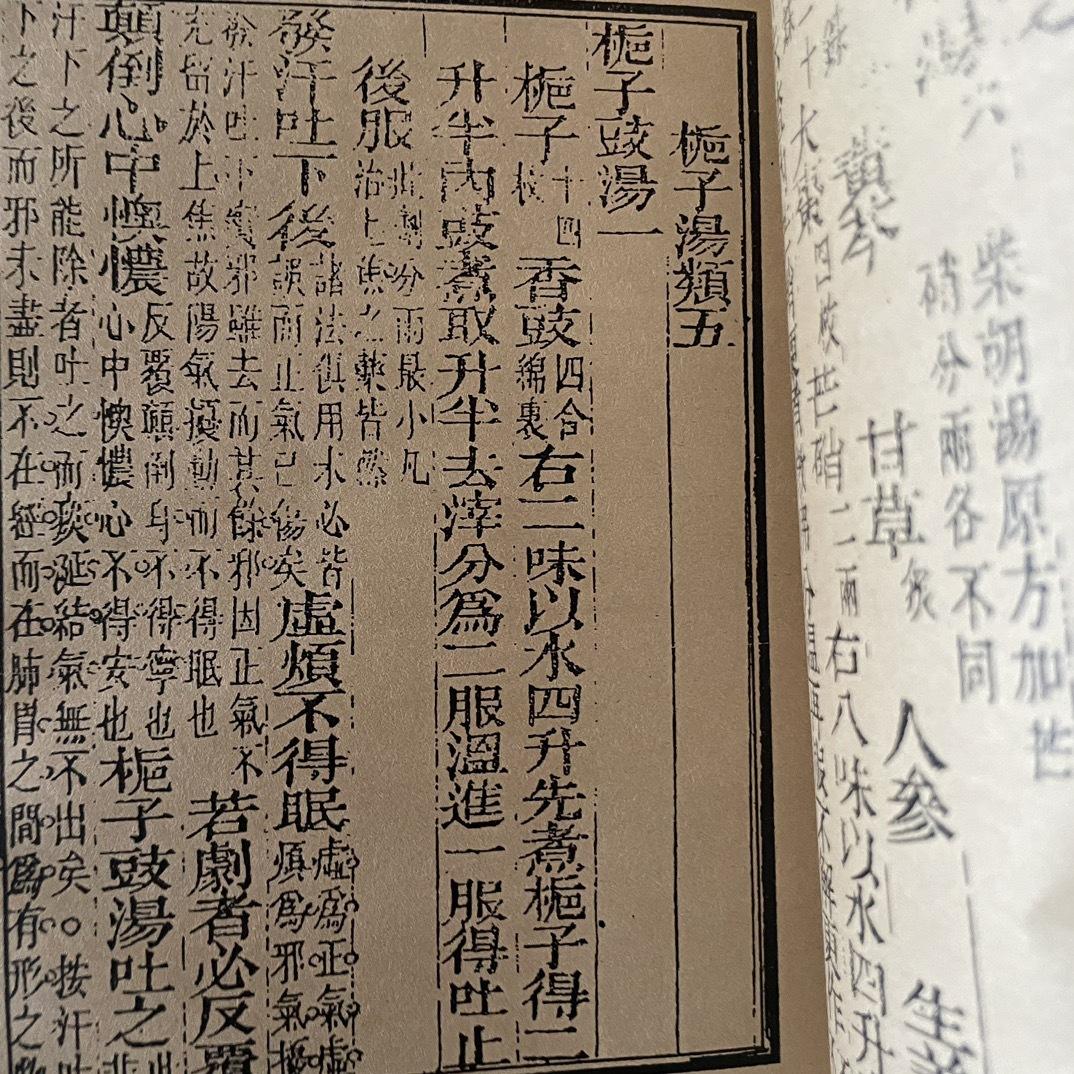 柴胡湯原方加芒
硝分兩各不同
黄芩 甘草炙 人參
大棗四枚 芒硝二兩右八味以水四升
梔子湯類五
梔子豉湯一
梔子十四枚 香豉四合綿裹右二味以水四升先煮梔子得二
升半內豉煮取升半去滓分爲二服溫進一服得吐止
後服此劑分兩最小凡治上焦之藥皆然
發汗吐下後諸法俱用未必皆誤而正氣已傷矣虛煩不得眠虛爲正氣虛煩爲邪氣擾
發汗吐下實邪雖去而其餘邪因正氣不充留於上焦故陽氣擾動而不得眠也若劇者必反覆
顛倒心中懊憹反覆顛倒身不得寧也心中懊憹心不得安也梔子豉湯吐之此非
汗下之所能除者吐之而痰涎結氣無不出矣。按汗吐
下之後而邪未盡則不在經而在肺胃之間爲有形之